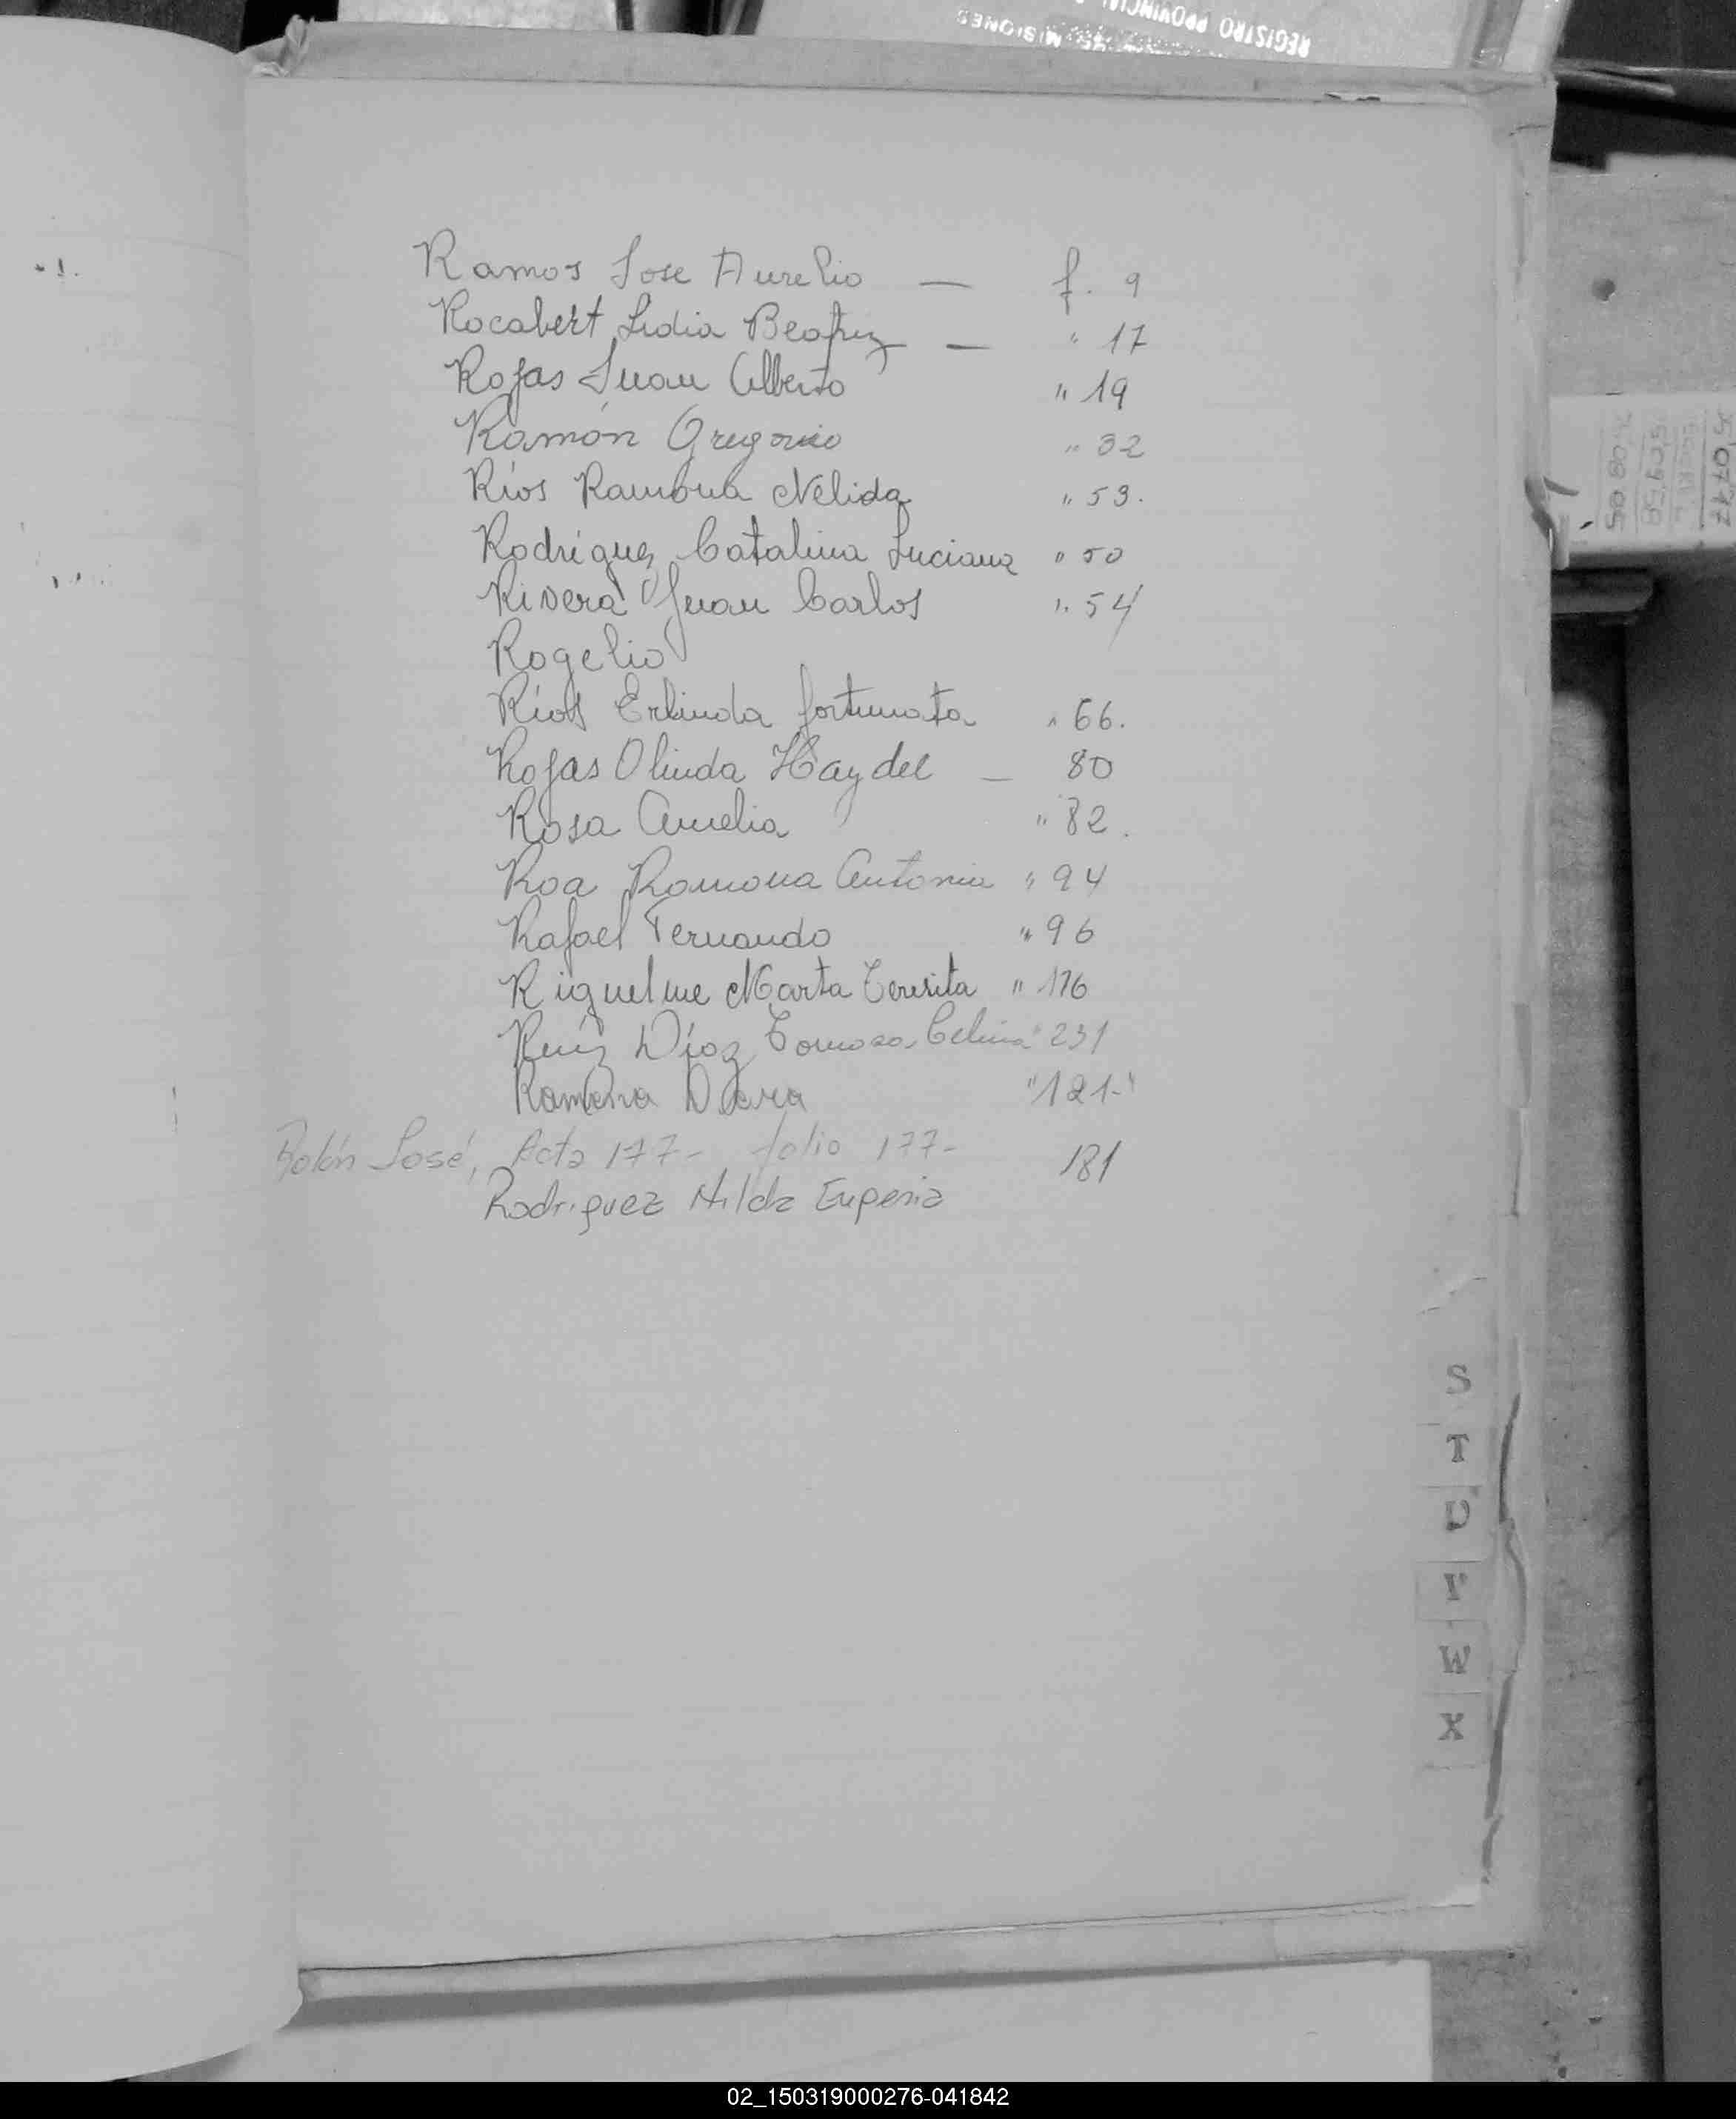 REGISTRO PROVINCIAL
MISIONES
Ramos Jose Aurelio — f. 9
Rocabert Lidia Beatriz — " 17
Rojas Juan Alberto " 19
Ramón Gregorio " 32
Ríos Ramona Nélida " 53.
Rodriguez Catalina Luciana " 50
Rivera Juan Carlos " 54
Rogelio
Ríos Erlinda fortunata " 66.
Rojas Olinda Haydee — 80
Rosa Amelia " 82.
Roa Ramona Antonia " 94
Rafael Fernando " 96
Riquelme Marta Teresita " 176
Ruíz Díaz Tomasa Celina " 231
Ramona Clara "121-"
Rolón José, Acta 177- folio 177-
181
Rodriguez Nilda Eugenia
S
T
U
V
W
X
02_150319000276-041842